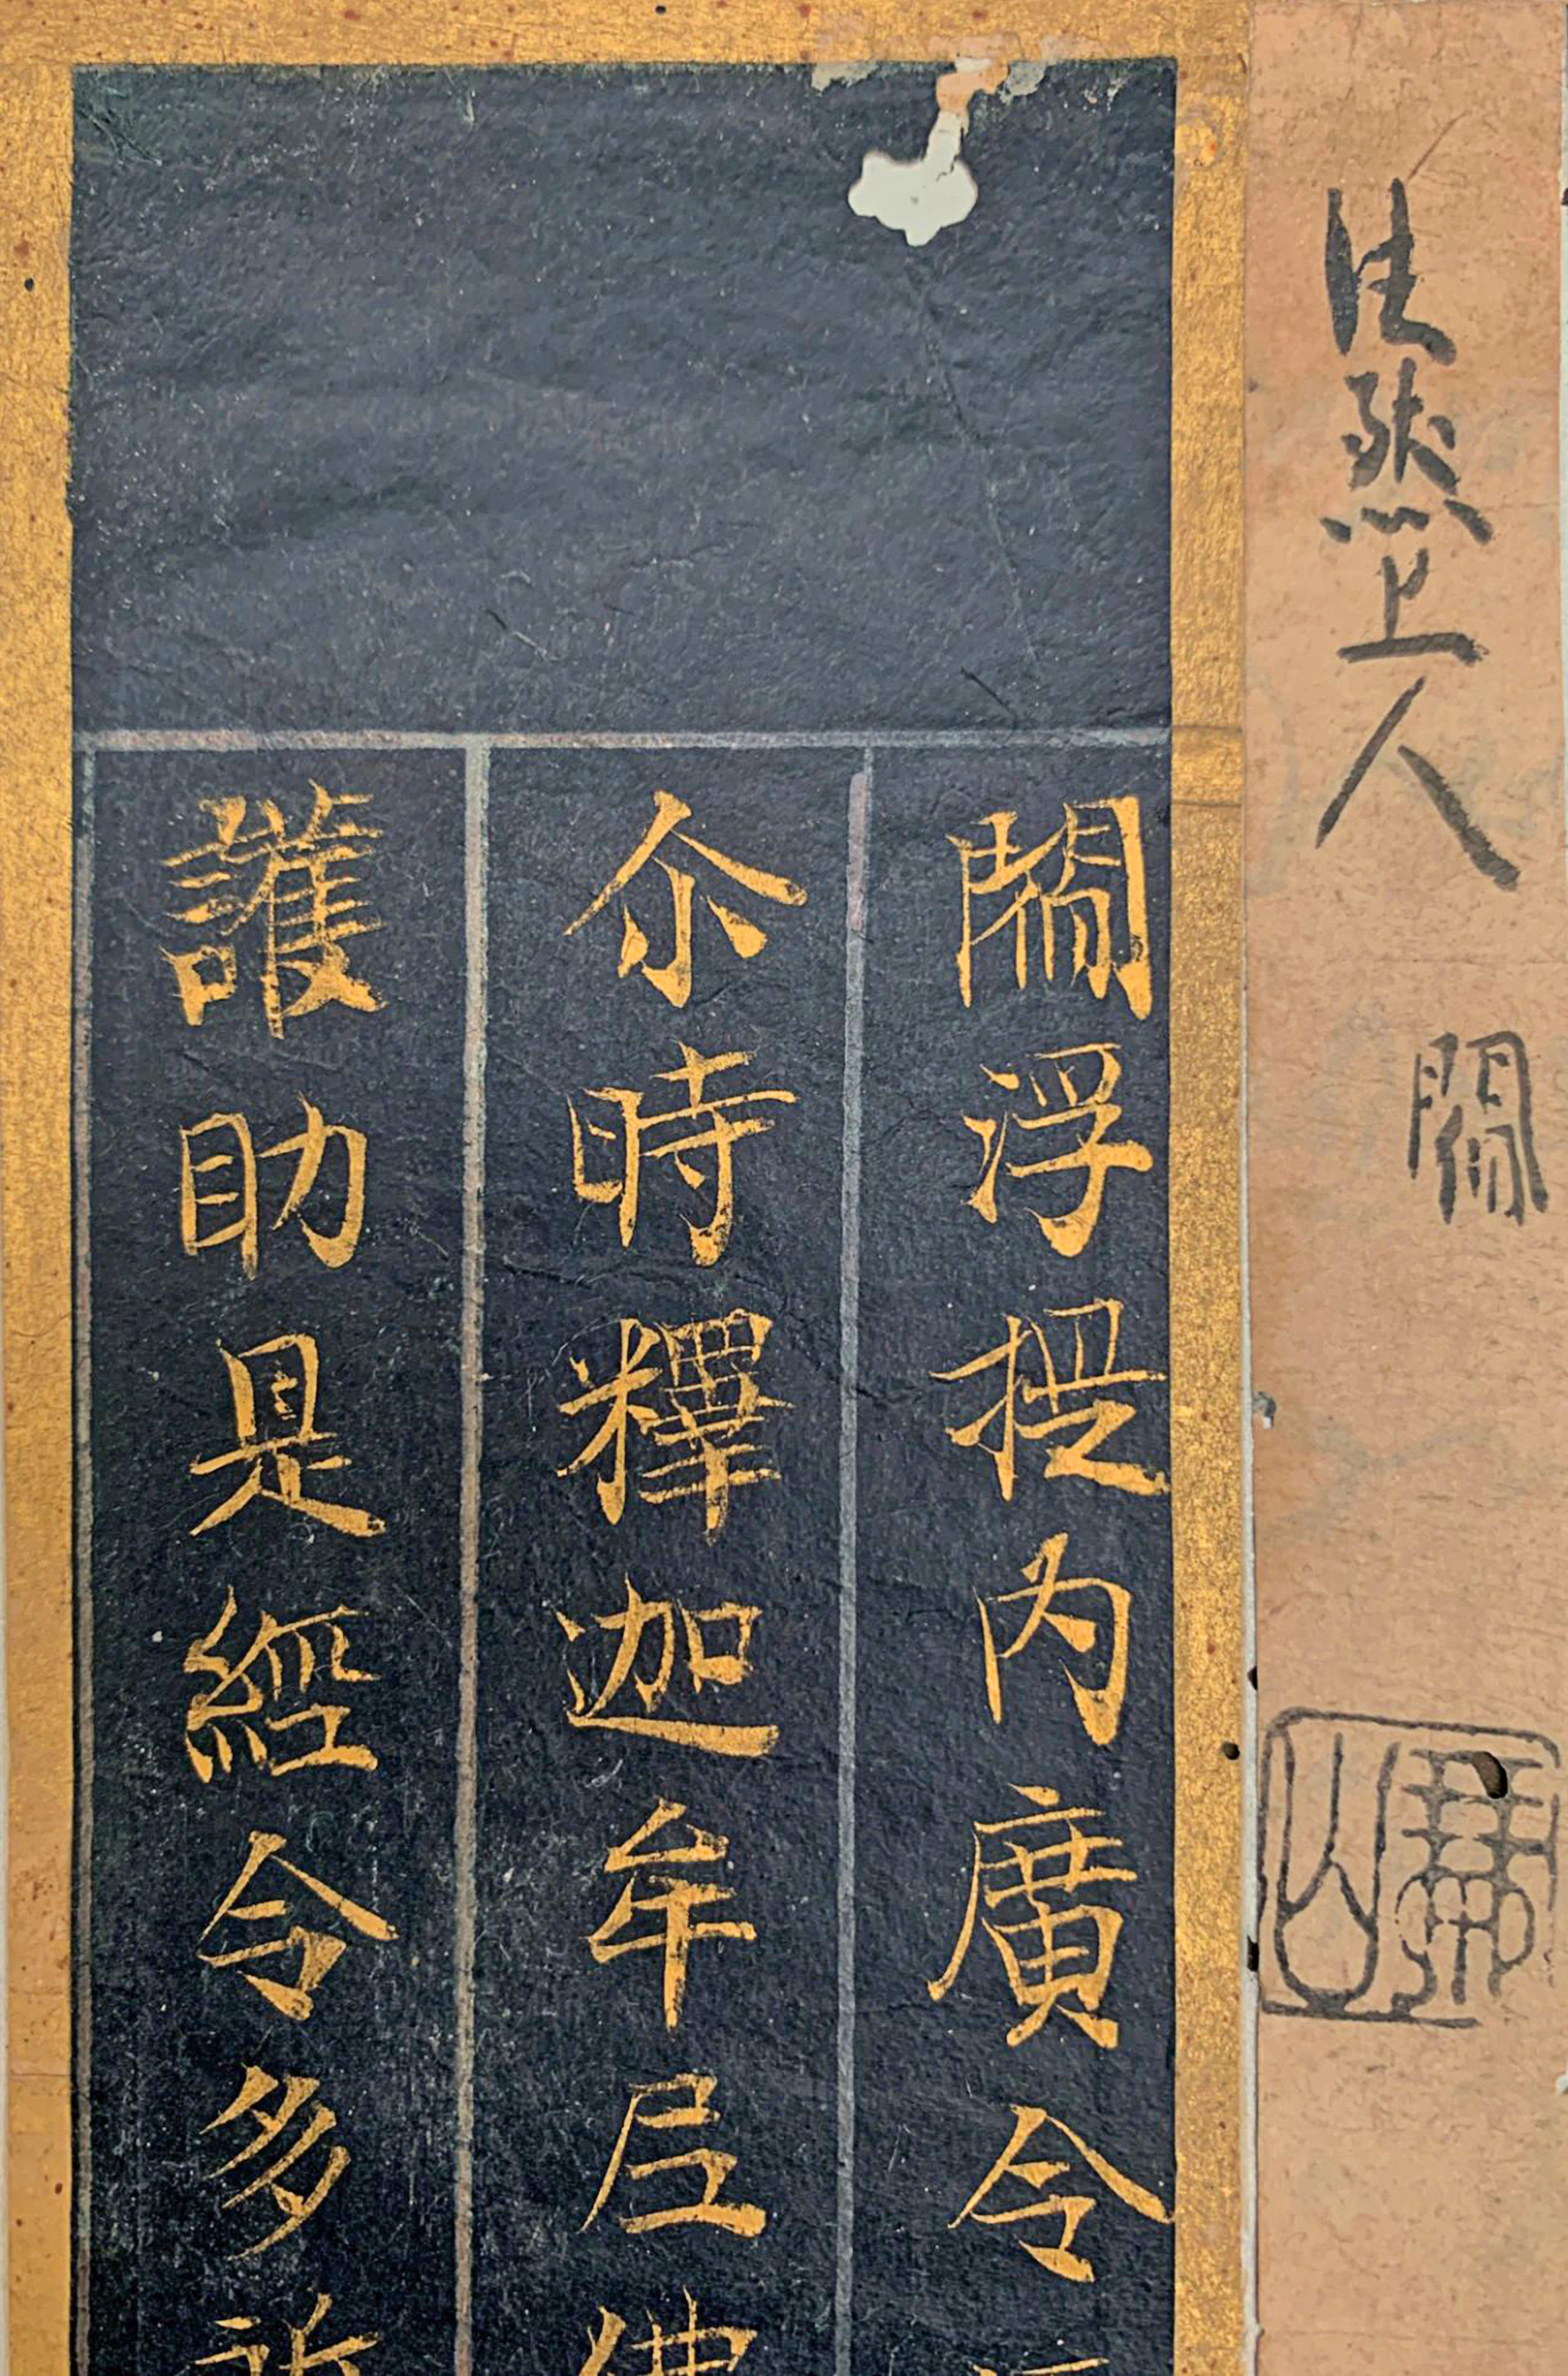 法然上人 閻
琴山
閻浮提内廣令
尒時釋迦牟尼佛
護助是經令多所